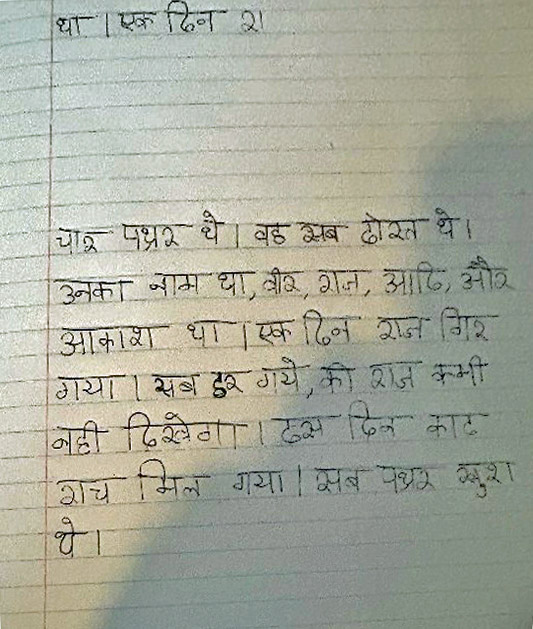 था । एक दिन रा
चार पथ्रर थे । वह सब दोस्त थे ।
उनका नाम था, वीर, राज, आदि, और
आकाश था । एक दिन राज गिर
गया । सब डर गये, की राज कभी
नही दिखेगा । दस दिन बाद
राच मिल गया । सब पथ्रर खुश
थे ।